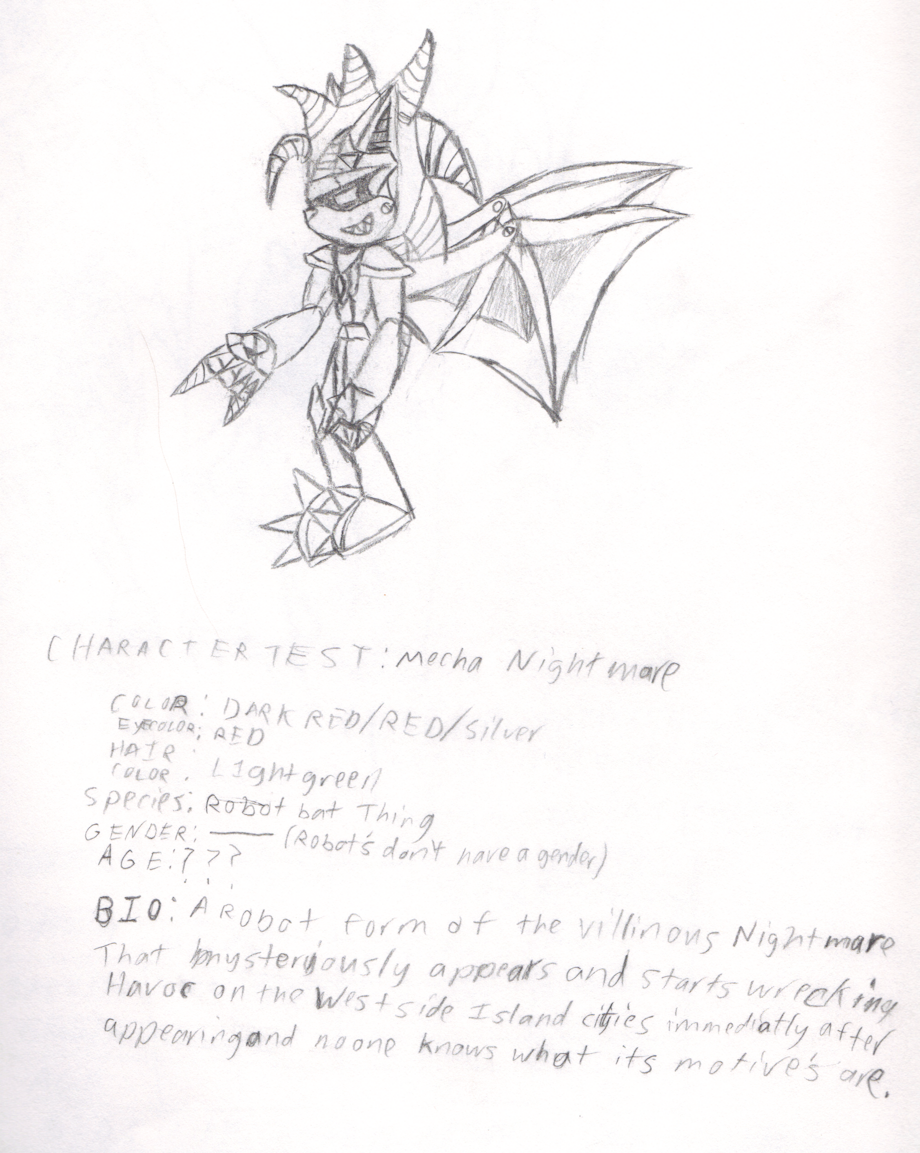 CHARACTER TEST: Mecha Nightmare
COLOR: DARK RED/RED/Silver
EYECOLOR: RED
HAIR
COLOR: LIghtgreen
Species: Robot bat Thing
GENDER: —— (Robot's don't have a gender)
AGE:???
BIO: A Robot form of the villinous Nightmare
That mysteriously appears and starts wrecking
Havoc on the Westside Island cities immediatly after
appearing and no one knows what its motive's are.